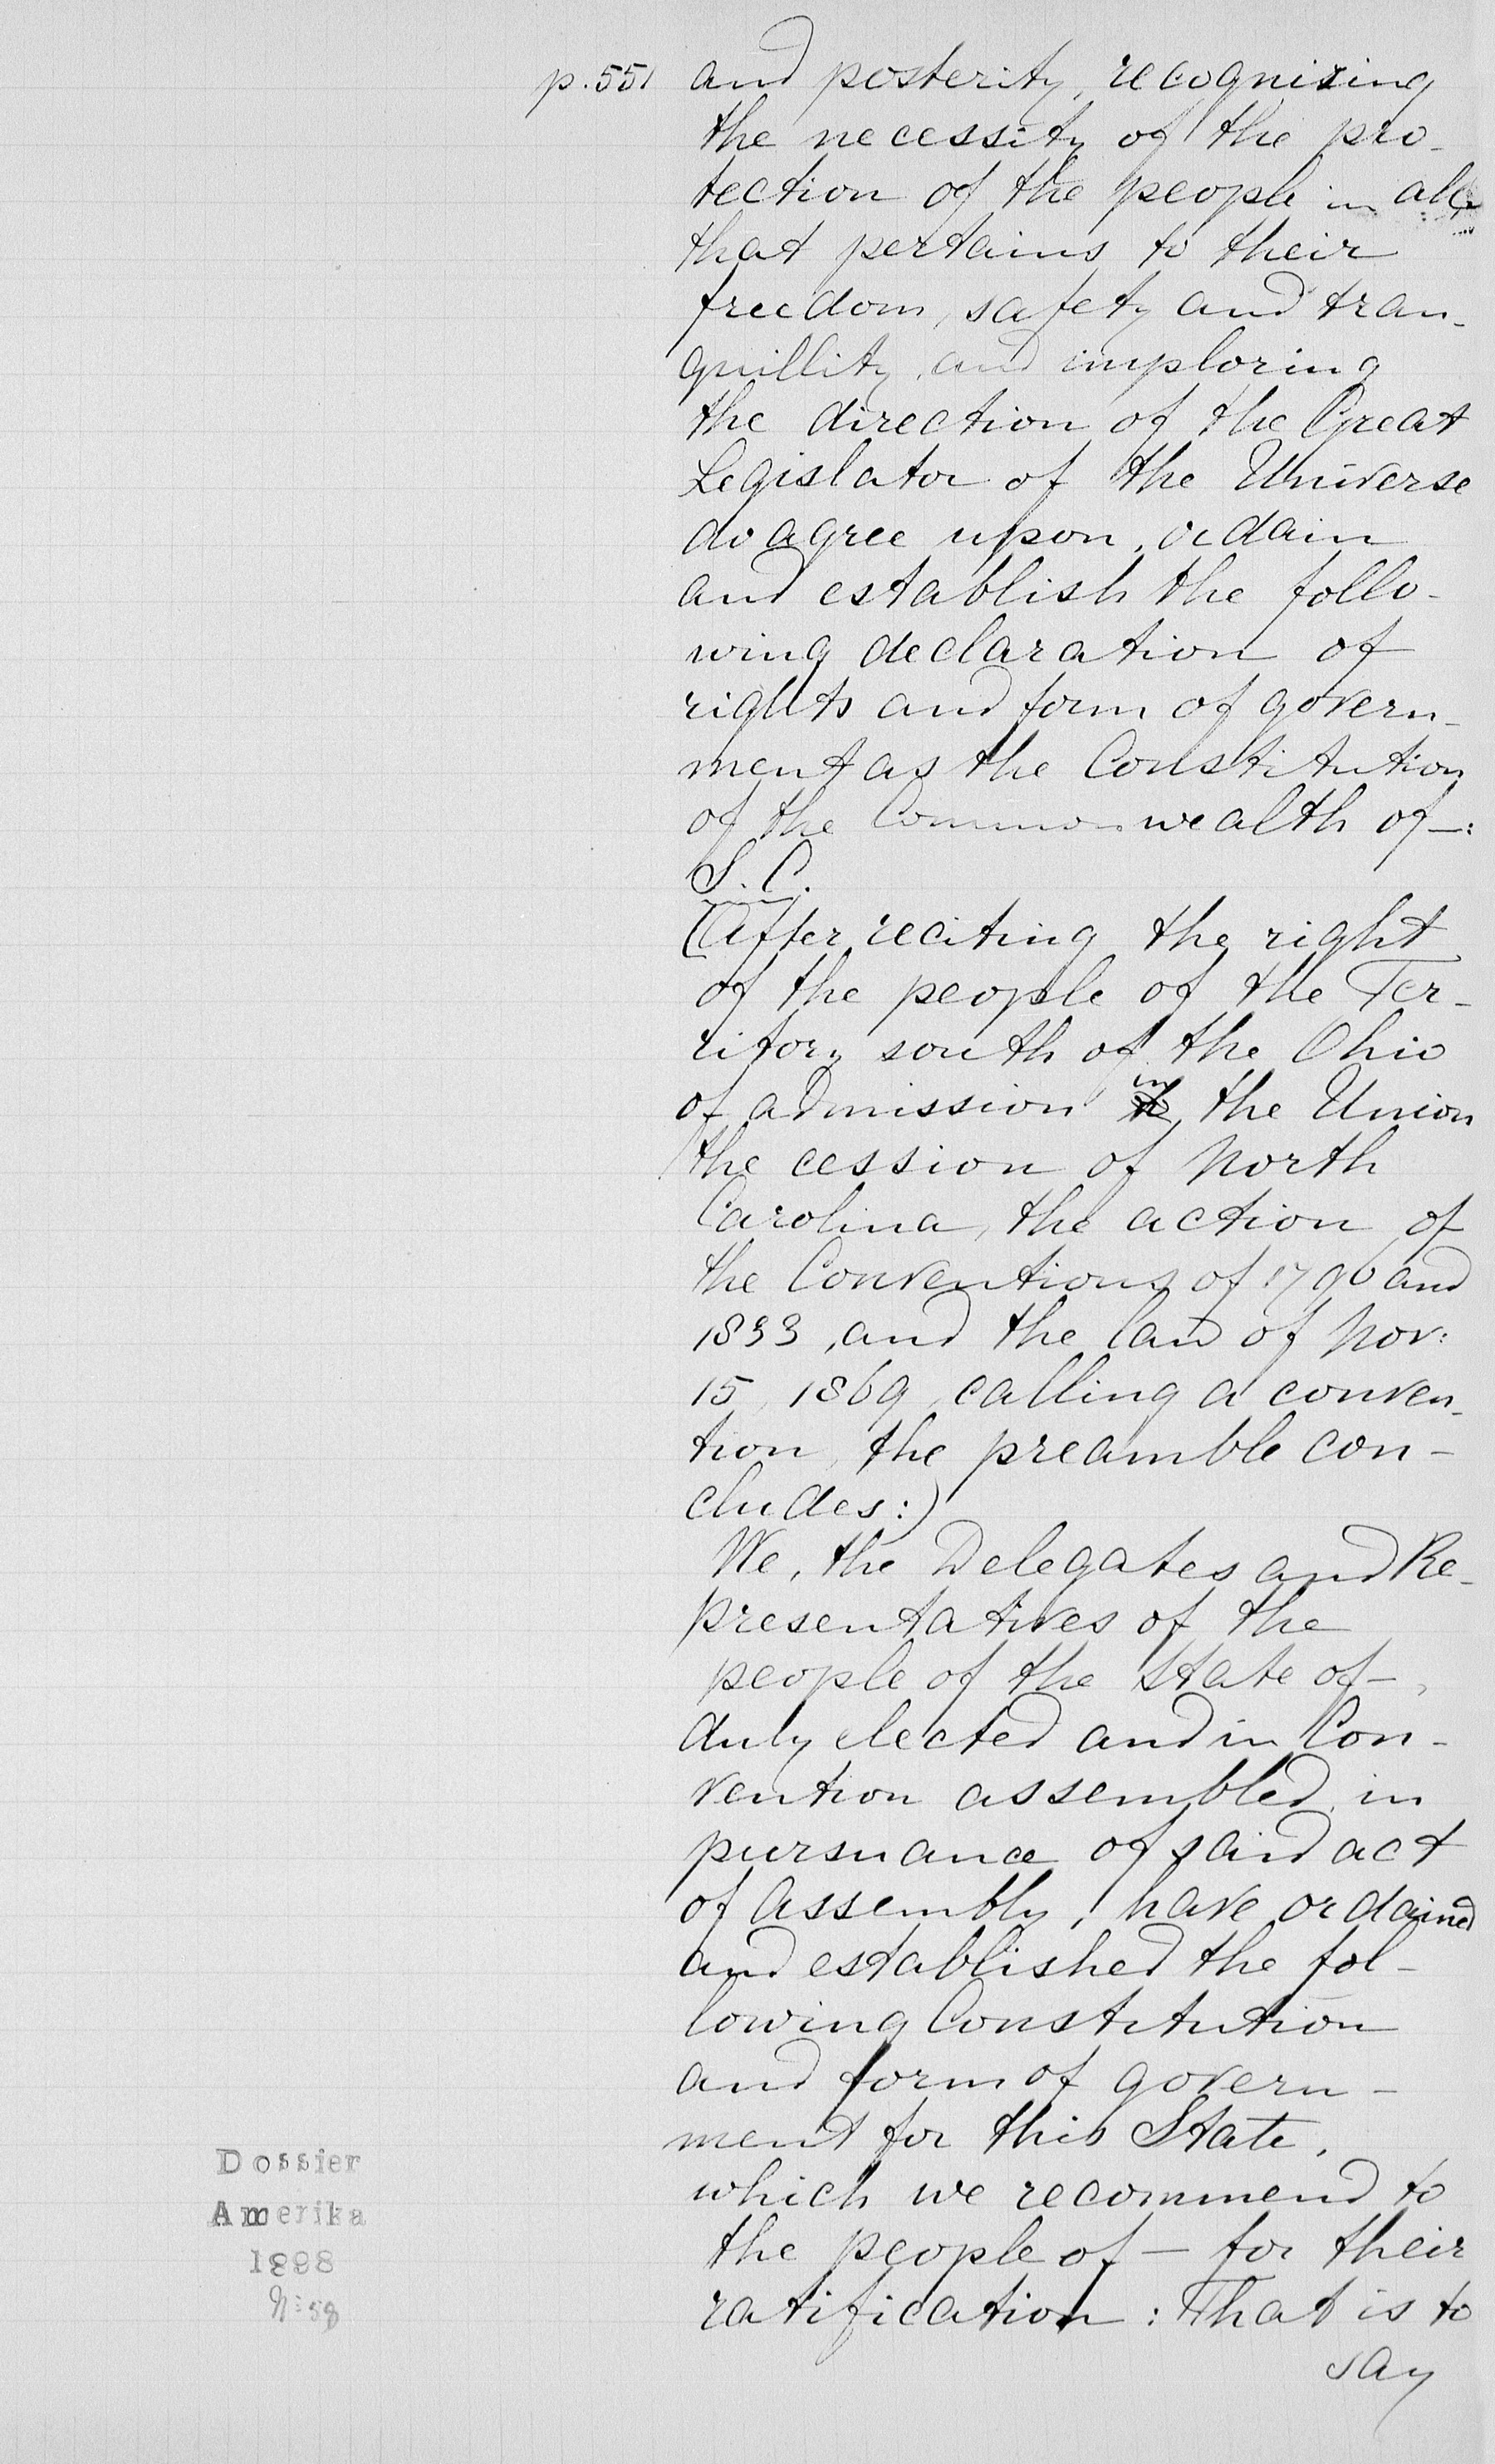 p. 551 and posterity, recognizing
the necessity of the pro-
tection of the people in all
that pertains to their
freedom, safety and tran-
quillity, and imploring
the direction of the Great
Legislator of the Universe
do agree upon, ordain
and establish the follo-
wing declaration of
rights and form of govern-
ment as the Constitution
of the Commonwealth of —:
S. C.
(After reciting the right
of the people of the Ter-
ritory south of the Ohio
of admission in the Union
the cession of North
Carolina, the action of
the Conventions of 1796 and
1833, and the law of Nov:
15, 1869, calling a conven-
tion, the preamble con-
cludes:)
We, the Delegates and Re-
presentatives of the
people of the State of —,
duly elected and in Con-
vention assembled, in
pursuance of said act
of Assembly, have ordained
and established the fol-
lowing Constitution
and form of govern-
ment for this State,
which we recommend to
the people of — for their
ratification: That is to
say
Dossier
Amerika
1898
N: 58